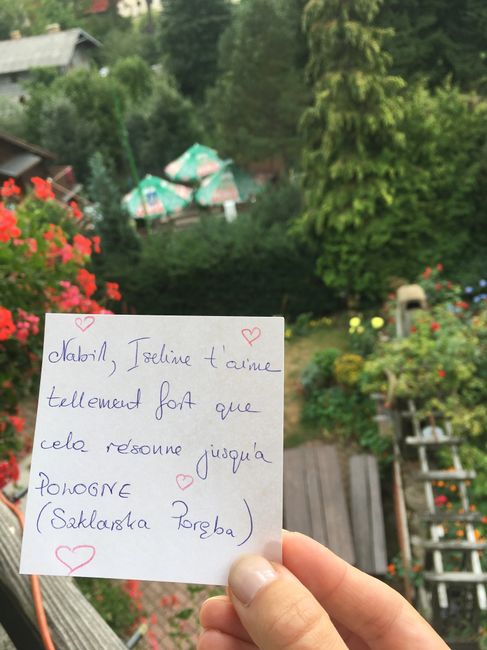 Nabil, Iseline t'aime
tellement fort que
cela résonne jusqu'a
POLOGNE
(Szklarska Poręba)